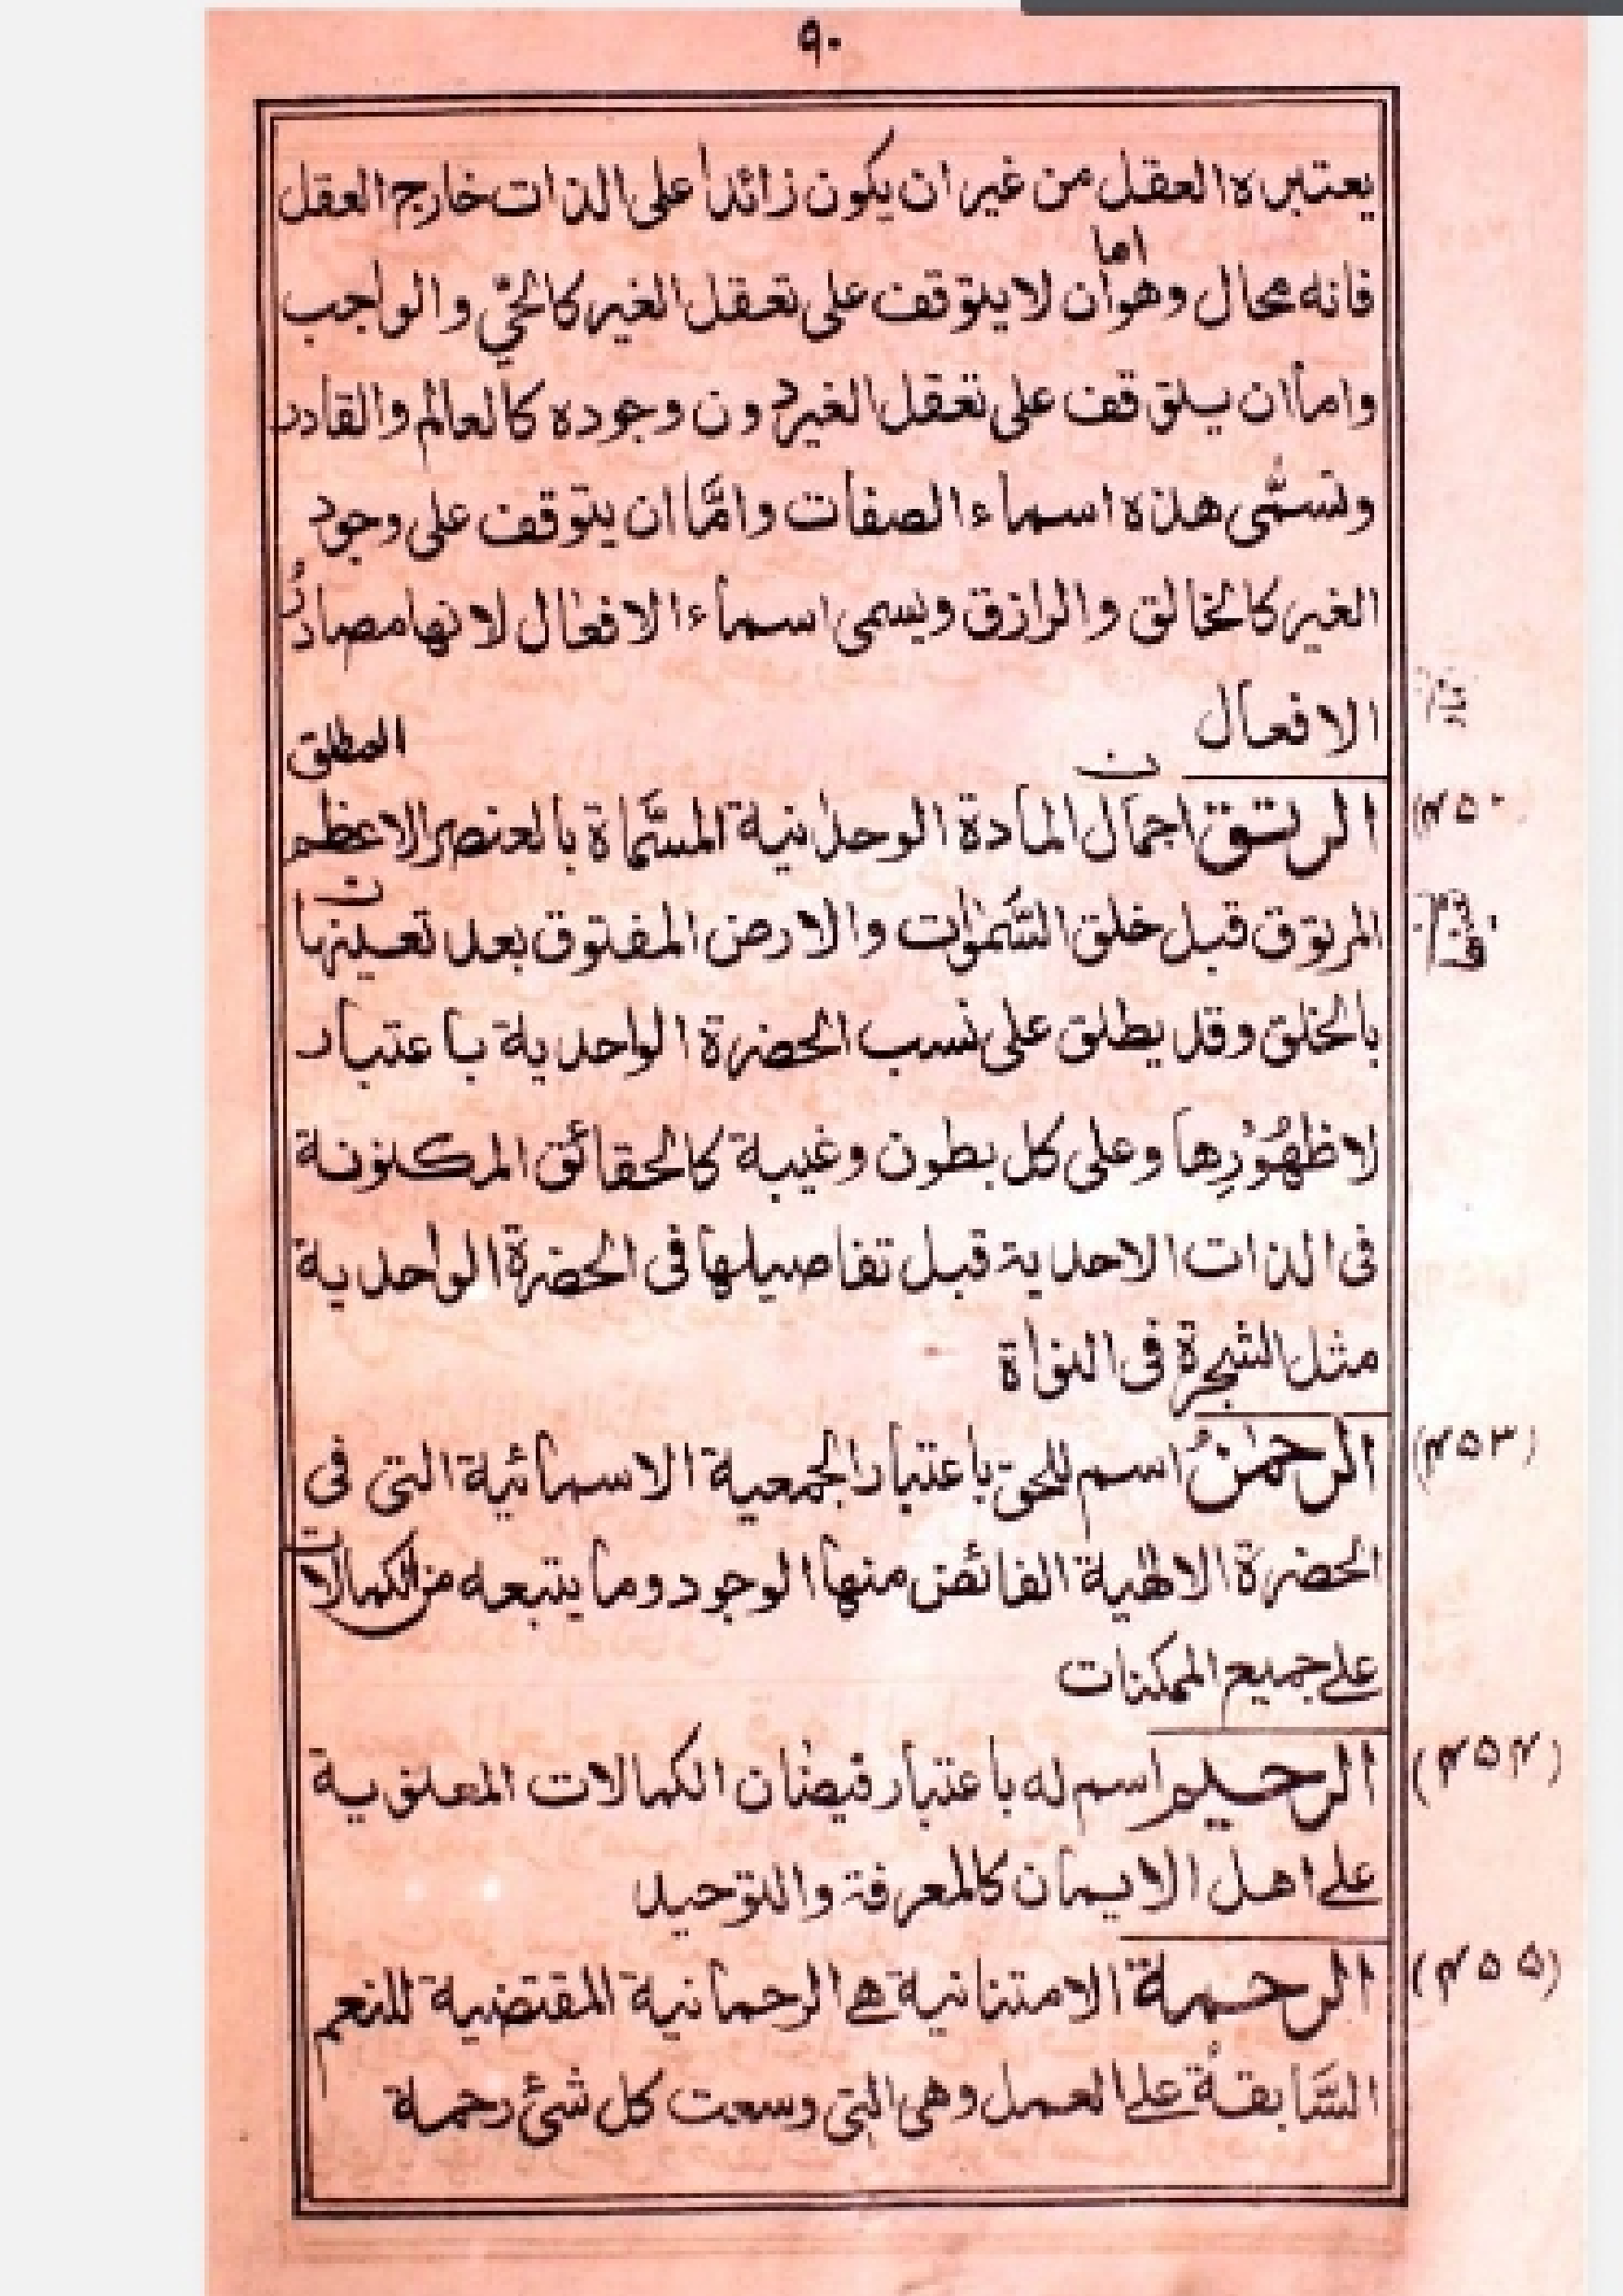 ٩٠
يعتبره العقل من غير ان يكون زائداً على الذات خارج العقل
اما
فانه محال وهو أن لا يتوقف على تعقل الغير كالحيّ والواجب
واما ان يتوقف على تعقل الغير دون وجوده كالعالم والقادر
وتسمّى هذه اسماء الصفات وامّا ان يتوقف على وجود
الغير كالخالق والرازق ويسمى اسماء الافعال لانها مصادر
الافعال
المطلق
(٤٥٢
الرتق اجمال المادة الوحدانية المسمّاة بالعنصر الاعظم
المرتوق قبل خلق السَّمٰوات والارض المفتوق بعد تعينها
بالخلق وقد يطلق على نسب الحضرة الواحدية باعتبار
لاظهُوْرِها وعلى كل بطون وغيبة كالحقائق المكنونة
فى الذات الاحدية قبل تفاصيلها فى الحضرة الواحدية
مثل الشجرة فى النواة
(٤٥٣)
الرحمٰنُ اسم للحق باعتبار الجمعية الاسمائية التى فى
الحضرة الالٰهية الفائض منها الوجود وما يتبعه من الكمالات
على جميع الممكنات
(٤٥٤)
الرحيم اسم له باعتبار فيضان الكمالات المعنوية
على اهل الايمان كالمعرفة والتوحيد
(٤٥٥)
الرحمة الامتنانية هي الرحمانية المقتضية للنعم
السَّابقةُ على العمل وهى التى وسعت كل شئ رحمة